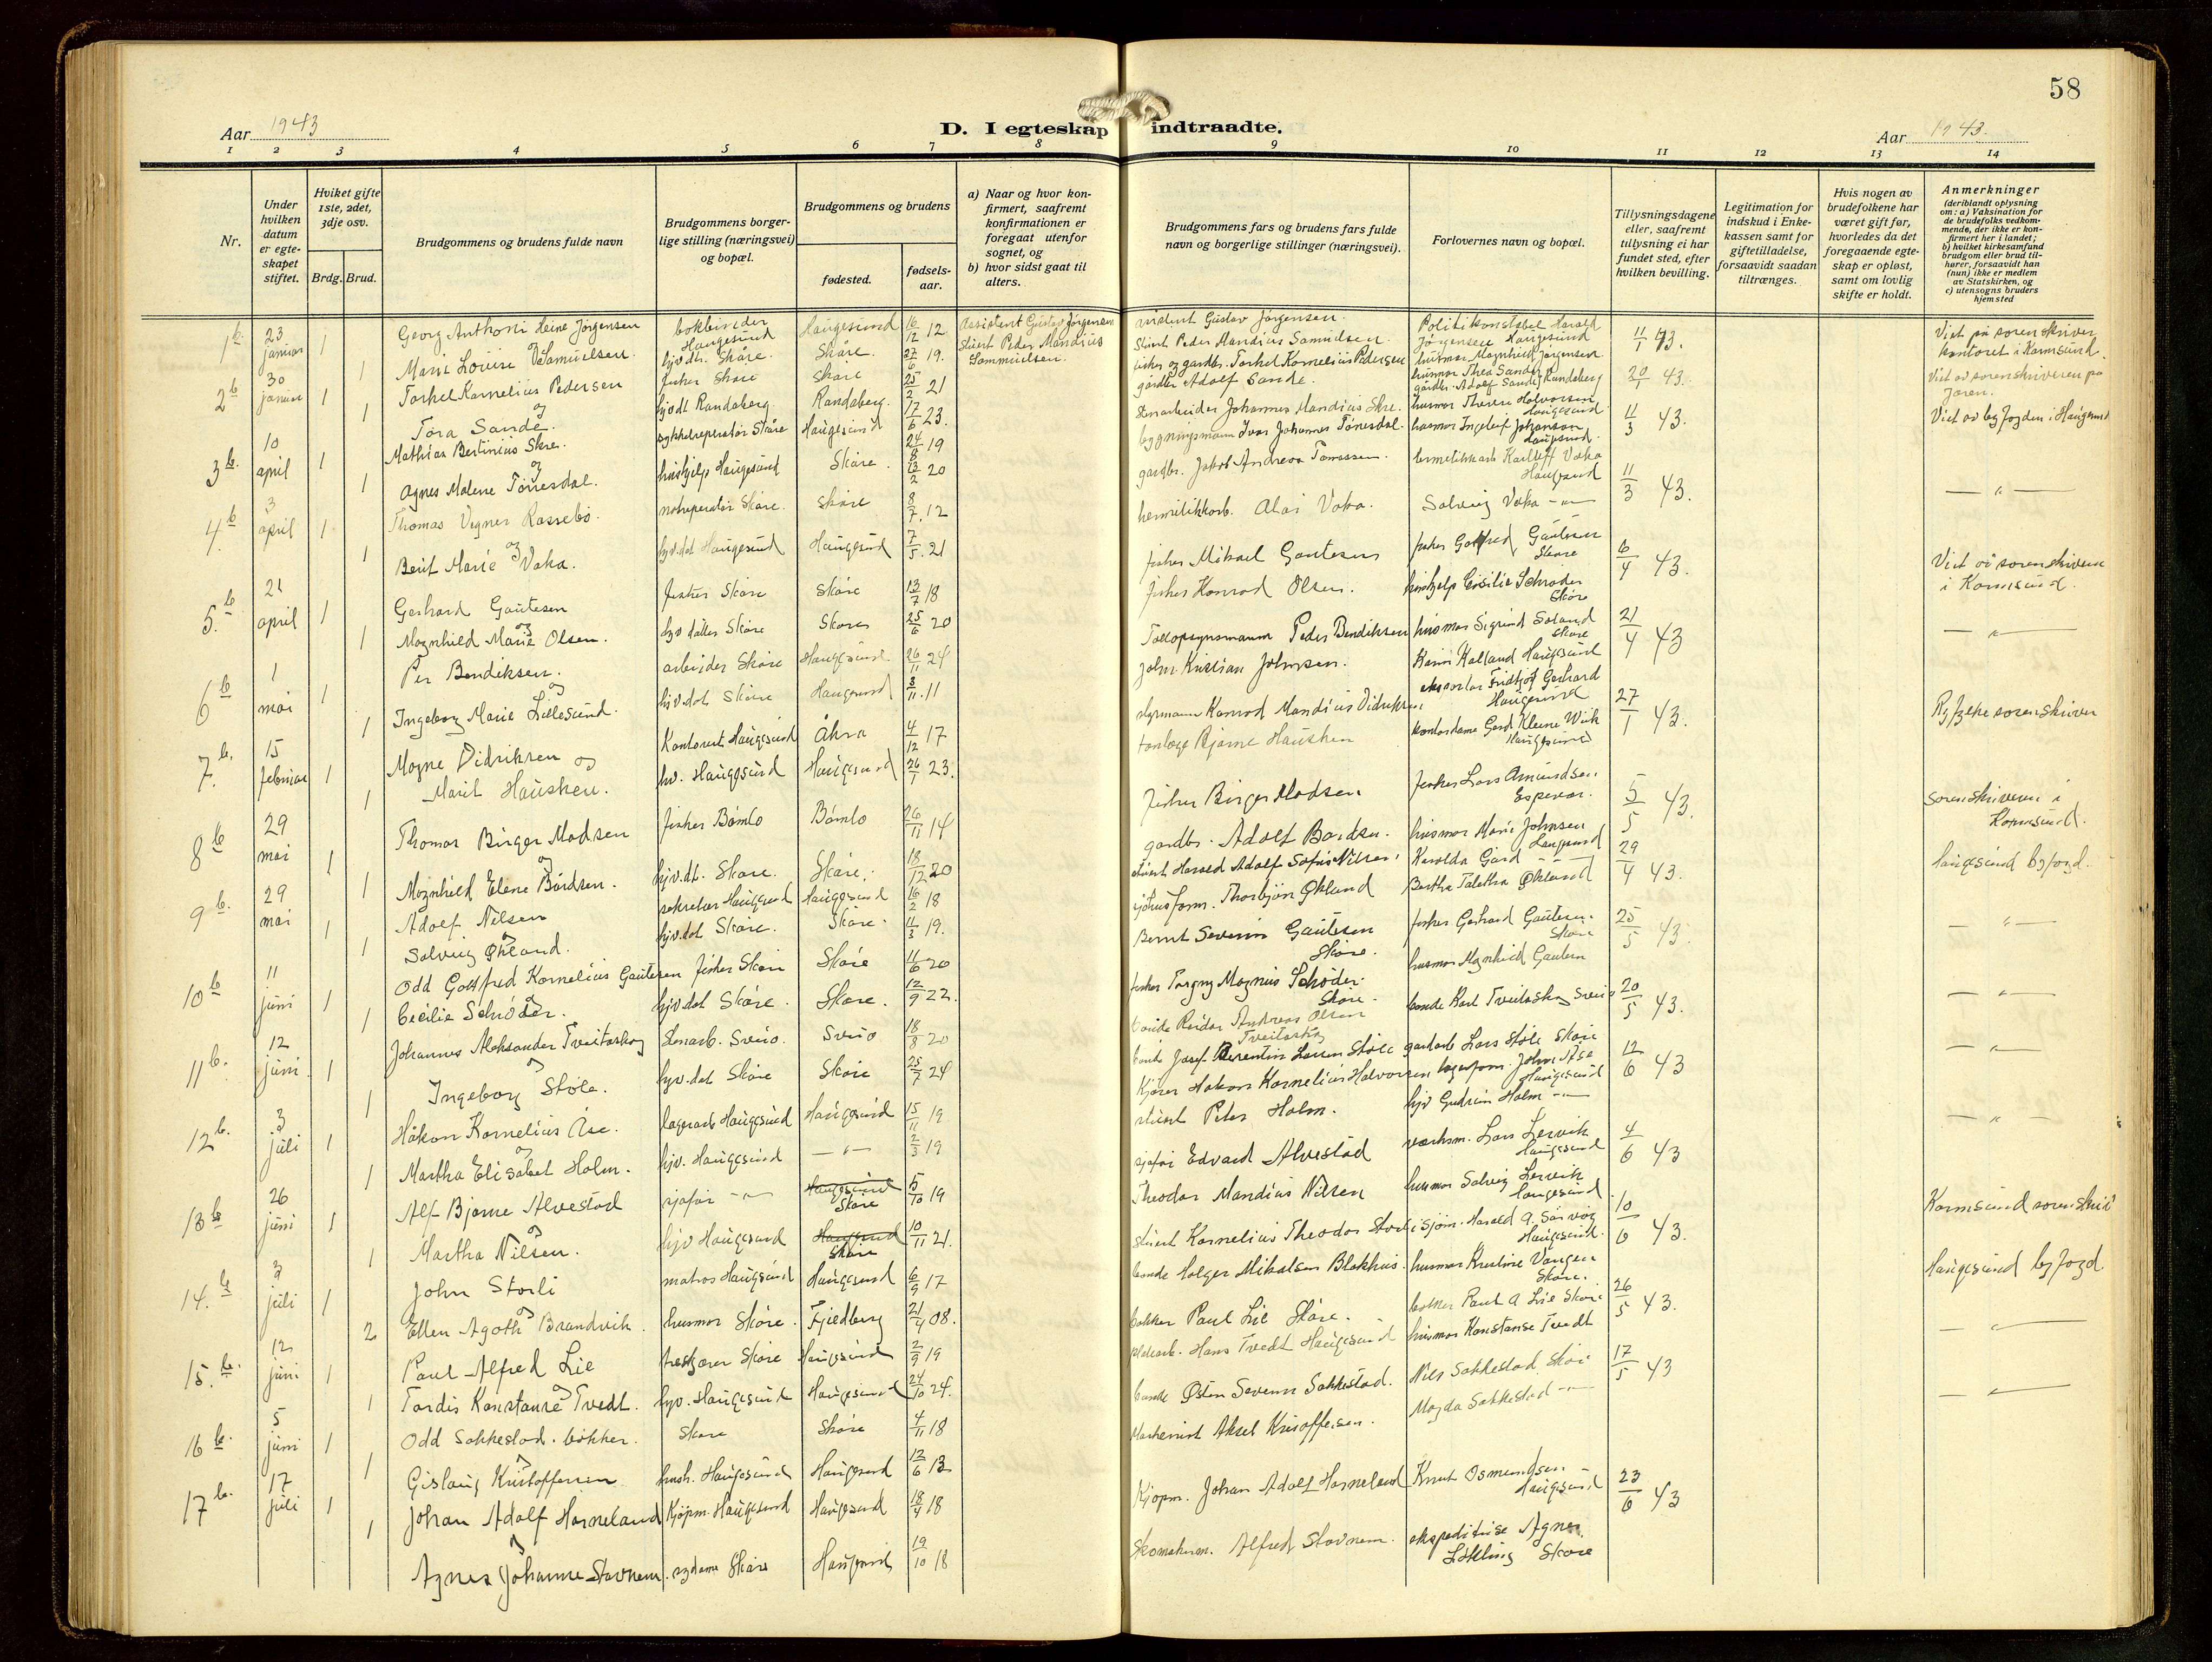 58
Aar 1943
D. I egteskap indtraadte.
Aar 1943.
1 2 3 4 5 6 7 8 9 10 11 12 13 14
Nr.
Under hvilken datum er egteskapet stiftet.
Hviket gifte 1ste, 2det, 3dje osv.
Brdg. Brud.
Brudgommens og brudens fulde navn
Brudgommens borgerlige stilling (næringsvei) og bopæl.
Brudgommens og brudens
fødested.
fødselsaar.
a) Naar og hvor konfirmert, saafremt konfirmationen er foregaat utenfor sognet, og
b) hvor sidst gaat til alters.
Brudgommens fars og brudens fars fulde navn og borgerlige stillinger (næringsvei).
Forlovernes navn og bopæl.
Tillysningsdagene eller, saafremt tillysning ei har fundet sted, efter hvilken bevilling.
Legitimation for indskud i Enkekassen samt for giftetilladelse, forsaavidt saadan tiltrænges.
Hvis nogen av brudefolkene har været gift før, hvorledes da det foregaaende egteskap er opløst, samt om lovlig skifte er holdt.
Anmerkninger
(deriblandt oplysning om: a) Vaksination for de brudefolks vedkommende, der ikke er konfirmert her i landet;
b) hvilket kirkesamfund brudgom eller brud tilhører, forsaavidt han (hun) ikke er medlem av Statskirken, og
c) utensogns bruders hjemsted
1 b. 23 januar 1 Georg Anthoni Heine Jørgensen bokbinder Haugesund Haugesund 16/12 12 Assistent Gustav Jørgensen
og 1 Marie Lovise Samuelsen. hjv.dt. Skåre. Skåre. 27/6 19. Stuert Peder Mandius Sammuelsen.
assistent Gustav Jørgensen. Politikonstabel Harald Jørgensen Haugesund 11/1 43. Viet på sorenskriverkontoret i Karmsund.
Stuert Peder Mandius Samuelsen. husmor Magnhild Jørgensen
2 b 30 januar 1 Torkel Kornelius Pedersen fisker Skåre Skåre 25/2 21
og 1 Tora Sande. hjv.dt Randaberg Randaberg. 17/6 23.
fisker og gardbr. Torkel Kornelius Pedersen husmor Thea Sande 20/1 43. Viet av sorenskriveren på Jæren.
gardbr Adolf Sande. gårdbr. Adolf Sande Randaberg
3 b. 10 april 1 Mathias Bertinius Skre. sykkelreperatør Skåre Haugesund 24/8 19
og 1 Agnes Malene Tønnesdal. hushjelp Haugesund Skåre. 13/2 20
Stenarbeider Johannes Mandius Skre. husmor Therese Halvorsen Haugesund 11/3 43. Viet av byfogden i Haugesund
bygningsmann Ivar Johannes Tønesdal. husmor Ingeleif Johanson Haugesund.
4 b 3 april 1 Thomas Vegner Rossebø. motreperatør Skåre. Skåre 8/7 12
og 1 Berit Marie Vaka. hjv.dat Haugesund Haugesund 7/5 21
gardbr. Jakob Andreas Tomassen. hermetikkarb Karlleff Vaka Haugesund 11/3 43. — " —
hermetikkarb. Alai Vaka. Solveig Vaka — " —
5. b 21 april 1 Gerhard Gautesen fisker Skåre Skåre 13/7 18
og 1 Magnhild Marie Olsen. hjv datter Skåre Skåre 25/6 20
fisker Mikael Gautesen fisker Gotfred Gautesen Skåre 6/4 43. Viet av sorenskriveren i Karmsund.
fisker Konrad Olsen. hushjelp Cecilie Schrøder Skåre
6 b 1 mai 1 Per Bendiksen. arbeider Skåre Haugesund 26/11 24
og 1 Ingeborg Marie Lillesund. hjv.dat Skåre Haugesund 3/11 11
Tollopsynsmann Peder Bendiksen husmor Sigrund Solund Skåre 21/4 43 — " —
John Kristian Johnsen. Karin Kalland Haugesund
7. b. 15 februar 1 Magne Didriksen og Kontorist Haugesund Åkra 4/12 17
1 Marit Hausken. hv. Haugesund Haugesund 26/1 23.
styrmann Konrad Mandius Didriksen, Fridtjof Gerhard Haugesund 27/1 43. Ryfylke sorenskriver
tanlæge Bjarne Hausken kontordame Gerd Kleine Wiik Haugesund
8 b 29 mai 1 Thomas Birger Madsen fisker Bømlo Bømlo 26/11 14
og 1 Magnhild Elene Bårdsen. hjv.dt. Skåre. Skåre. 18/12 20
fisker Birger Madsen fisker Lars Amundsen. Espevær. 5/5 43. Sorenskriveren i Karmsund.
gardbr. Adolf Bårdsen. husmor Marie Johnsen Haugesund
9 b. 29 mai 1 Adolf Nilsen sekretær Haugesund Haugesund 16/2 18
og 1 Solveig Økland. hjv.dat Skåre. Skåre. 11/3 19.
stuert Harald Adolf Sofus Nilsen. Karolda Gard — " — 29/4 43. Haugesund byfogd.
Thorbjørn Økland Bertha Taletha Økland
10 b 11 juni 1 Odd Gottfred Kornelius Gautesen fisker Skåre Skåre 11/6 20
og 1 Cecilie Schrøder. hjv.dat Skåre. Skåre. 12/9 22.
Bernt Severin Gautesen Skåre. fisker Gerhard Gautesen. Skåre 25/5 43. — " —
fisker Torgny Magnus Schøder. Skåre. husmor Magnhild Gautesen
11 b. 12 juni 1 Johannes Aleksander Tveitaskog Stenarb. Sveio. Sveio 18/8 20
og 1 Ingeborg Støle. hjv.dat Skåre Skåre 25/7 24
bonde Reidar Andreas Olsen Tveitaskog bonde Karl Tveitaskog Sveio 20/5 43. — " —
bonde Josef Berentin Larsen Støle gardarb Lars Støle Skåre
12 b. 3 juli 1 Håkon Kornelius Åse. lagerarb Haugesund Haugesund 15/11 19
og 1 Martha Elisabet Holm. hjv. Haugesund — " — 2/3 19
Kjører Hakon Kornelius Halvorsen lagerform. John Åse Haugesund 12/6 43 — " —
stuert Peter Holm. hjv Gudrun Holm — " —
13 b 26 juni 1 Alf Bjarne Alvestad sjafør — " — Haugesund Skåre 5/10 19
og 1 Martha Nilsen. hjv Haugesund Haugesund Skåre 10/11 21.
sjafør Edvard Alvestad verksm. Lars Lervik Haugesund 4/6 43 — " —
Theodor Mandius Nilsen husmor Solveig Lervik Haugesund
14. b 3 juli 1 John Storli matros Haugesund Haugesund 6/9 17
og 2 Ellen Agoth Brandvik. husmor Skåre. Fjeldberg 21/4 08.
stuert Kornelius Theodor Storli sjøm. Harald A. Sørvåg Haugesund. 10/6 43. Karmsund sorenskriv
bonde Holger Mikalsen Blokhus. husmor Kristine Vangen Skåre.
15. b. 12 juni 1 Paul Alfred Lie Skåre Haugesund 2/9 19
og 1 Tordis Konstanse Tvedt. hjv. Haugesund Haugesund 24/10 24.
bøkker Paul Lie Skåre. bøkker Paul A Lie Skåre 26/5 43. Haugesund byfogd.
Hans Tvedt Haugesund husmor Konstanse Tvedt
16 b. 5 juni 1 Odd Sakkestad. bøkker. Skåre Skåre 4/11 18
og 1 Gislaug Kristoffersen hush. Haugesund Haugesund 12/6 13
bonde Østen Severin Sakkestad. Nils Sakkestad Skåre 17/5 43 — " —
Maskinist Aksel Kristoffersen. Magda Sakkestad — " —
17 b. 17 juli 1 Johan Adolf Horneland Kjøpm. Haugesund Haugesund 18/4 18
og 1 Agnes Johanne Stavnem. sydame Skåre Haugesund 19/10 18
Kjøpm. Johan Adolf Horneland Knut Osmundsen. Haugesund 23/6 43 — " —
Skomakerm. Alfred Stavnem. ekspeditrise Agnes Skåre